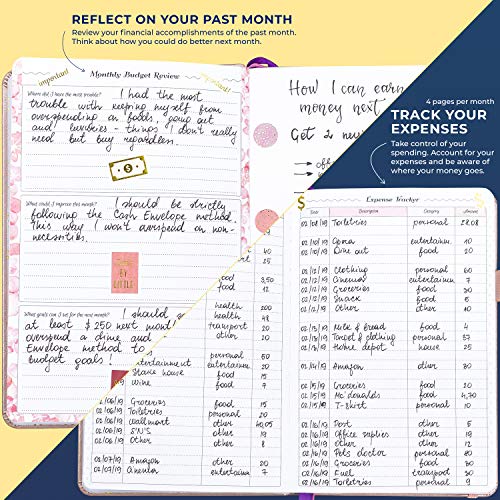 REFLECT ON YOUR PAST MONTH
Review your financial accomplishments of the past month.
Think about how you could do better next month.
important!
Monthly Budget Review
important!
Where did I have the most trouble?
I had the most
trouble with keeping myself from
overspending on foods, going out
and luxuries - things I don't really
need but buy regardless.
$
What could I improve this month?
I should be strictly
following the Cash Envelope method.
This way I won't overspend on non-
necessities.
BY
LITTLE
What goals can I set for the next month?
I should
at least $250 next mon
overspend a dime and
Envelope method to
budget goals!
How I can ear
money next
Get a
4 pages per month
TRACK YOUR
EXPENSES
Take control of your
spending. Account for your
expenses and be aware of
where your money goes.
$
Expense Tracker
Date Description Category Amount
02/08/19 Toiletries personal 28.08
02/10/19 Opera entertainm. 10
02/10/19 Dine out food 20
02/12/19 Clothing personal 60
02/12/19 Cinema entertainm. 7
02/12/19 Groceries food 30
02/12/19 Snack food 5
02/12/19 Other other 8
02/13/19 Milk & Bread food 4
02/13/19 clothing personal 57
02/13/19 Home depot house 25
02/14/19 Amazon other 80
02/15/19 Groceries food 20
02/15/19 Mc'donalds food 4,70
02/15/19 T-shirt personal 10
02/16/19 Port other 5
02/16/19 Office supplies other 19
02/16/19 Other other 12
02/16/19 Pets doctor personal 80
02/16/19 Groceries food 30
02/16/19 Fuel transport 30
02/16/19 Toiletries personal 9
food 3,50
food 12
health 200
health 48
transport 20
other 10
personal 50
entertainment entertainm. 20
Stake house food 15
/19 Wine food 7
02/06/19 Groceries food 15
02/06/19 Toiletries personal 10
02/06/19 Wallmart other 40,05
02/06/19 S'N'S other 19
02/06/19 Other other 8
02/07/19 Amazon other 20
02/07/19 Cinema entertainm. 7